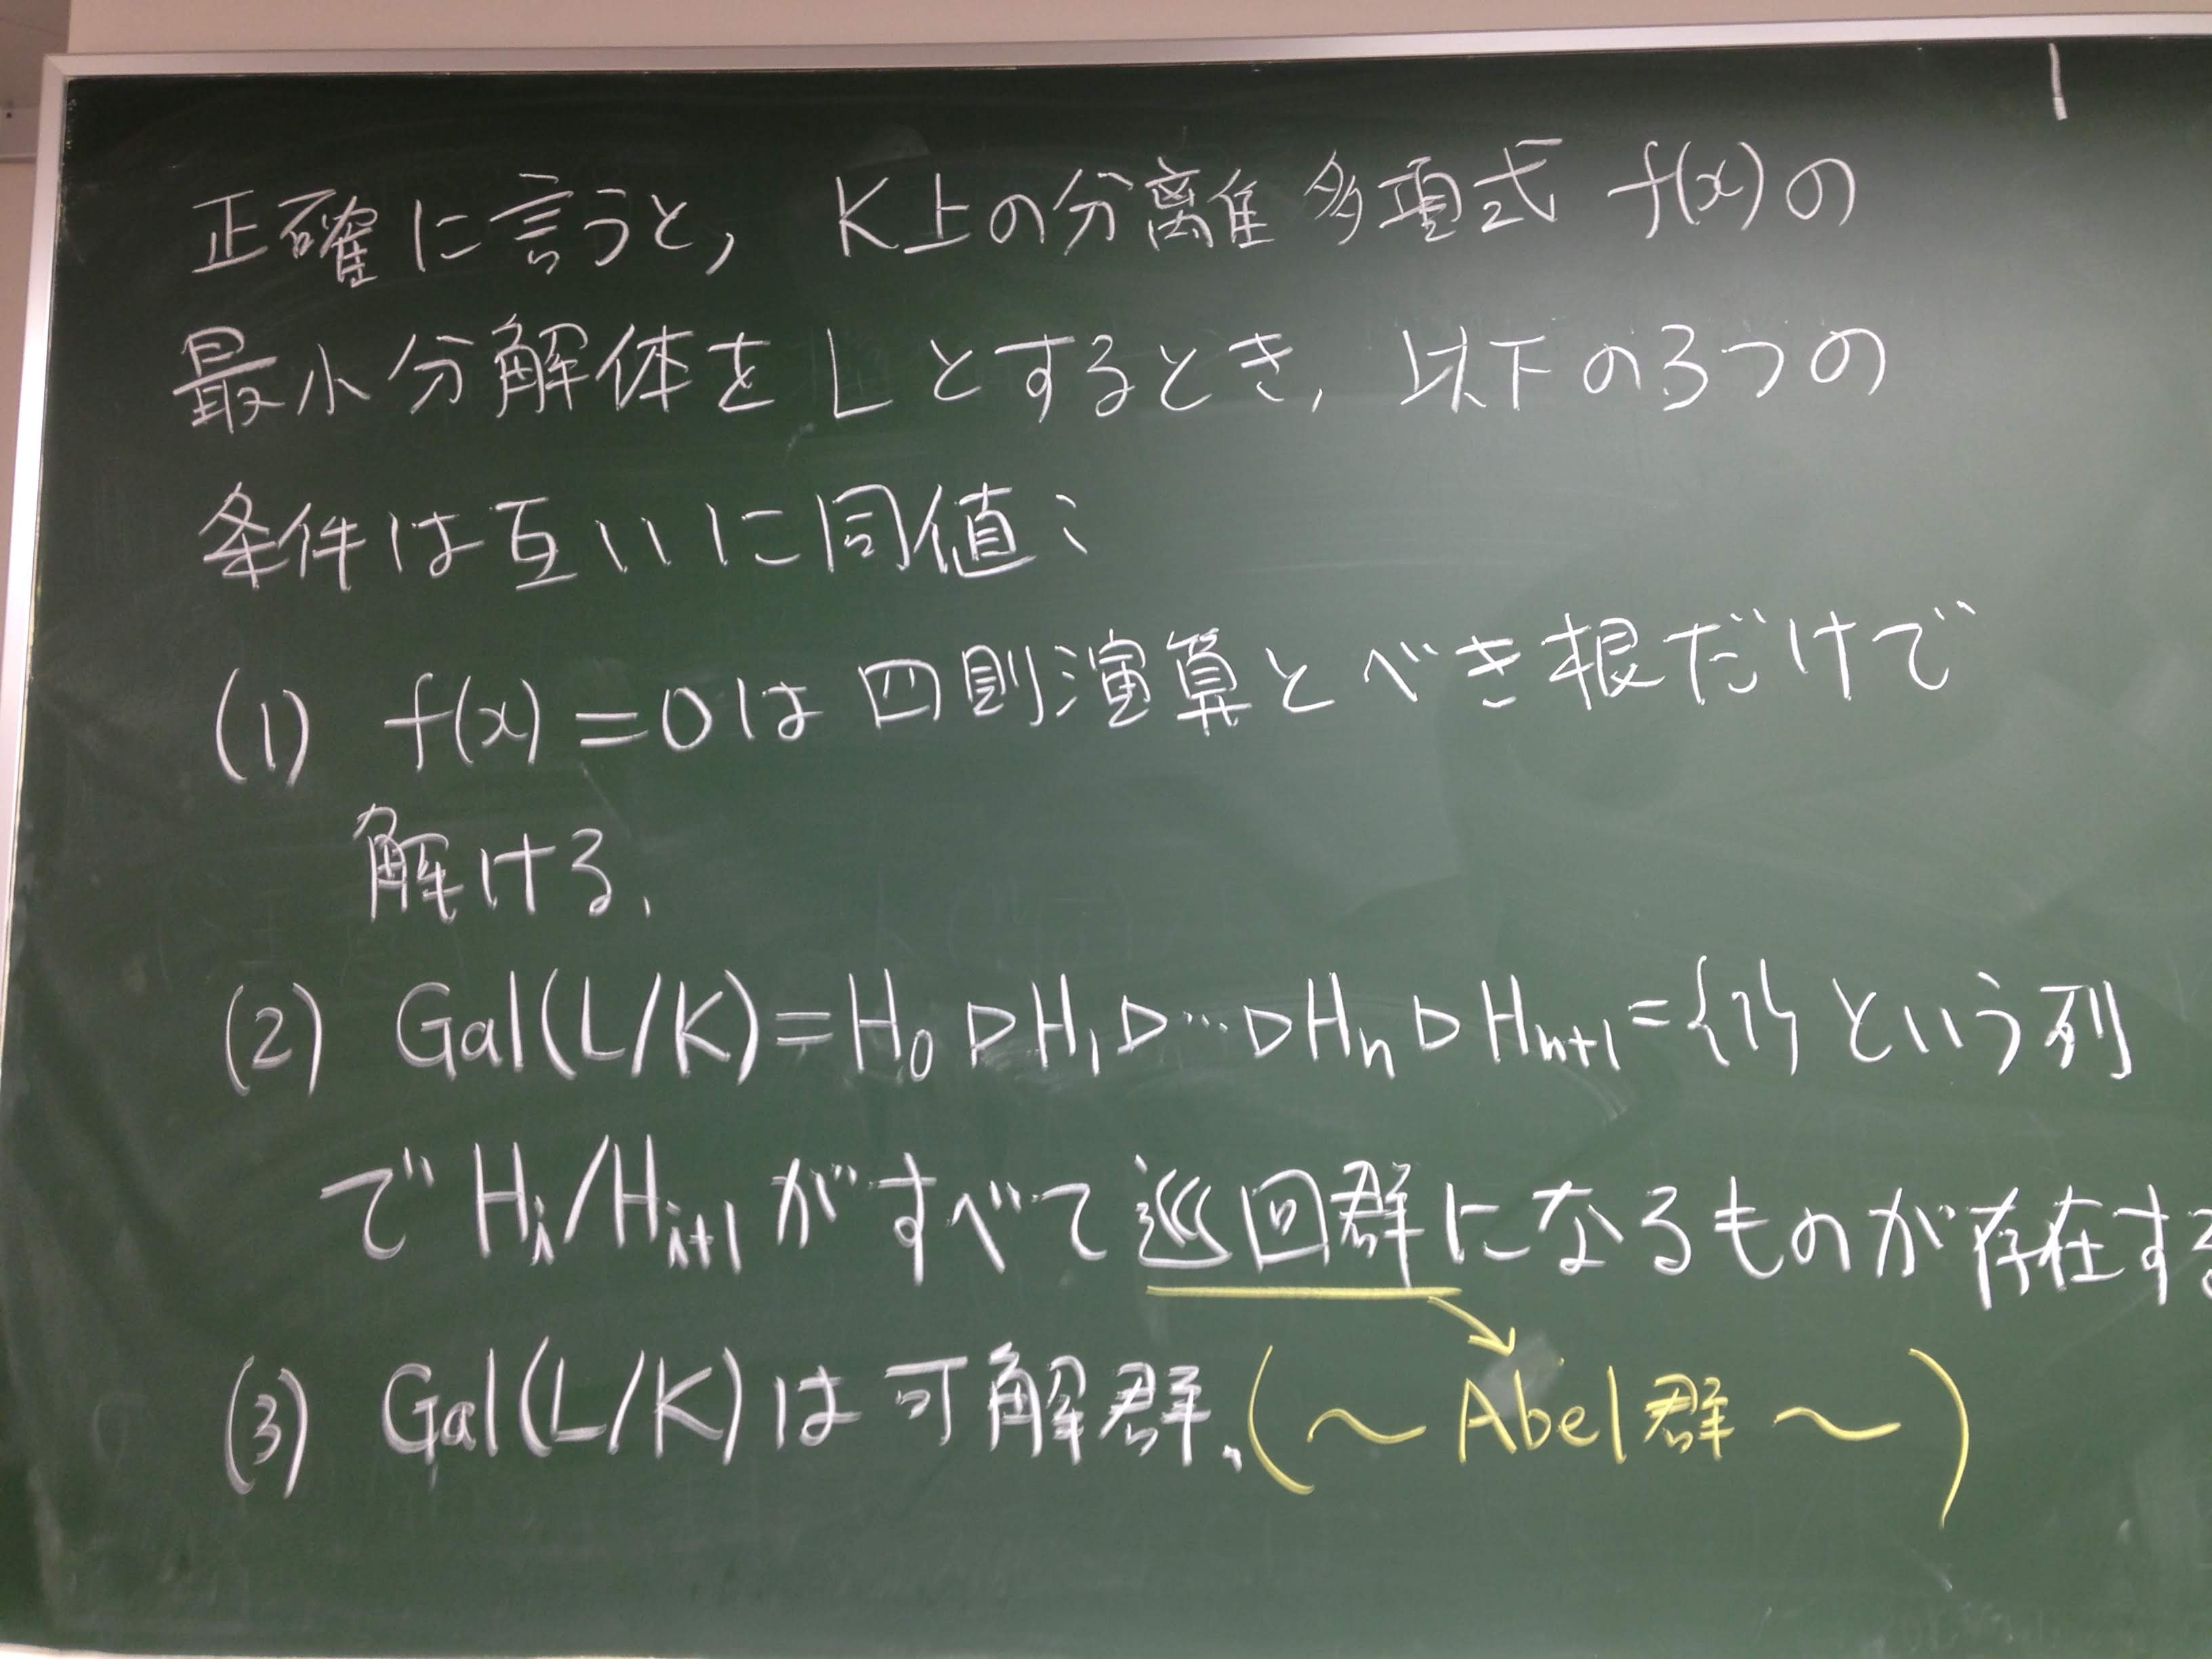 正確に言うと, K上の分離多項式 f(x)の
最小分解体を L とするとき, 以下の3つの
条件は互いに同値:
(1) f(x)=0は四則演算とべき根だけで
解ける.
(2) Gal(L/K)=H₀▷H₁▷…▷Hₙ▷Hₙ₊₁={1}という列
でHᵢ/Hᵢ₊₁がすべて巡回群になるものが存在する
(3) Gal(L/K)は可解群.(～Abel群～)